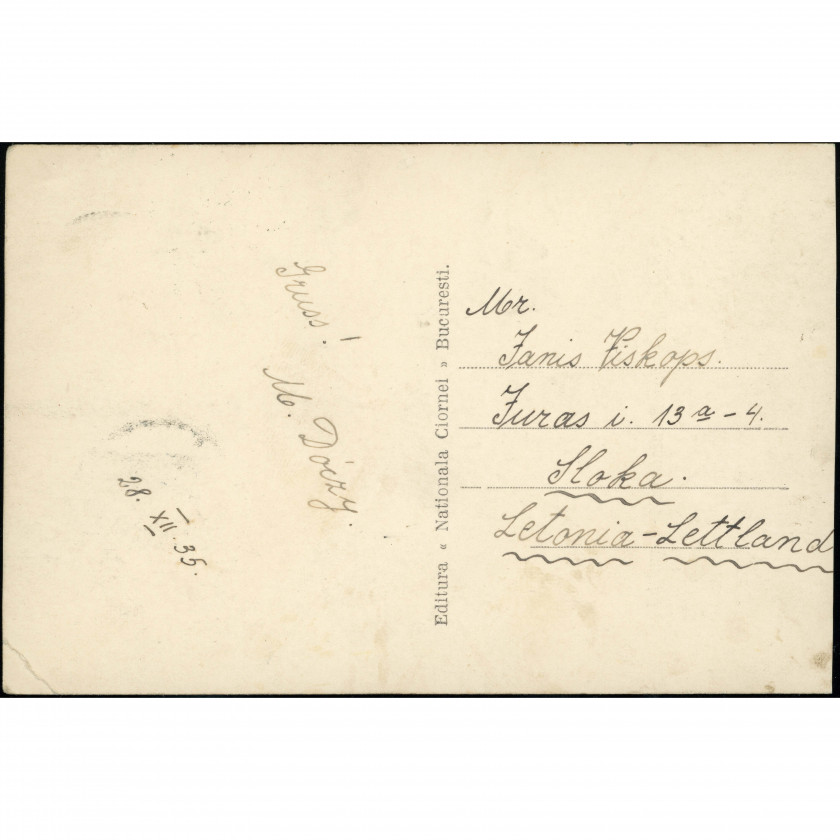 Gruss!
M. Dóczy.
28. XII. 35.
Editura « Nationala Ciornei » Bucuresti.
Mr.
Janis Viskops.
Juras i. 13 a - 4.
Sloka.
Letonia-Lettland